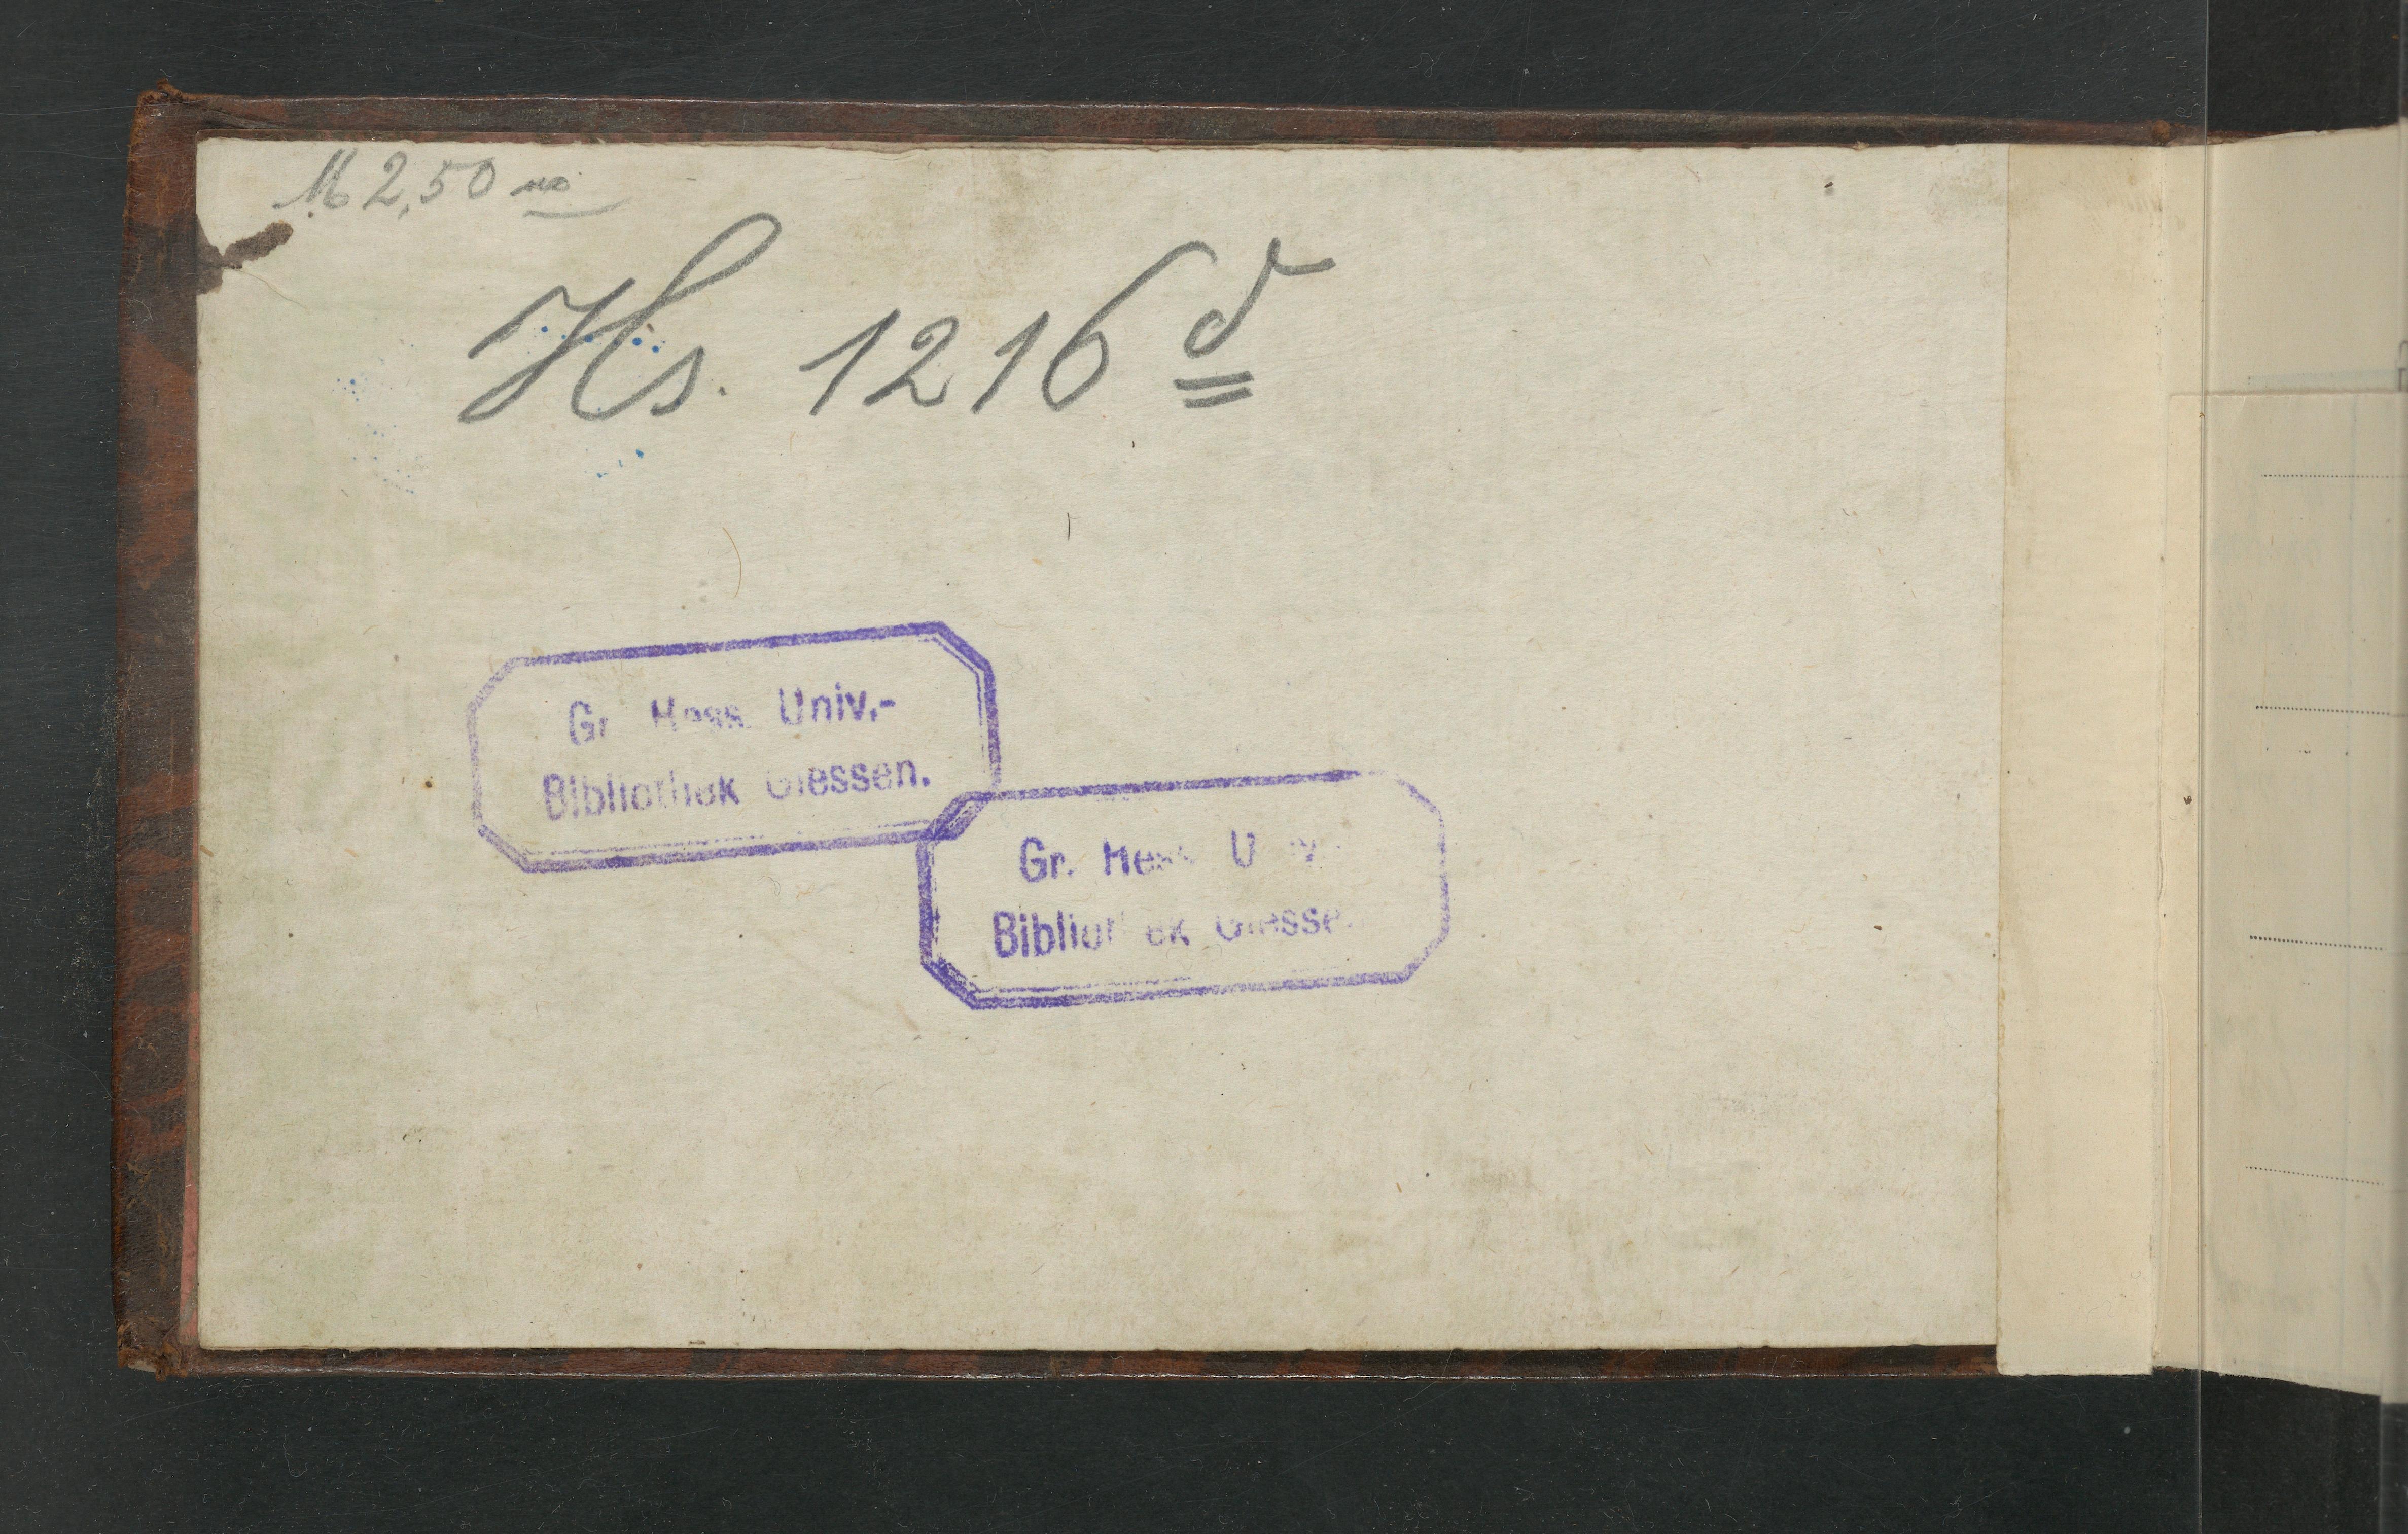 M 2,50 no
Hs. 1216 d
Gr. Hess. Univ.-
Bibliothek Giessen.
Gr. Hess. Univ.-
Bibliothek Giessen.